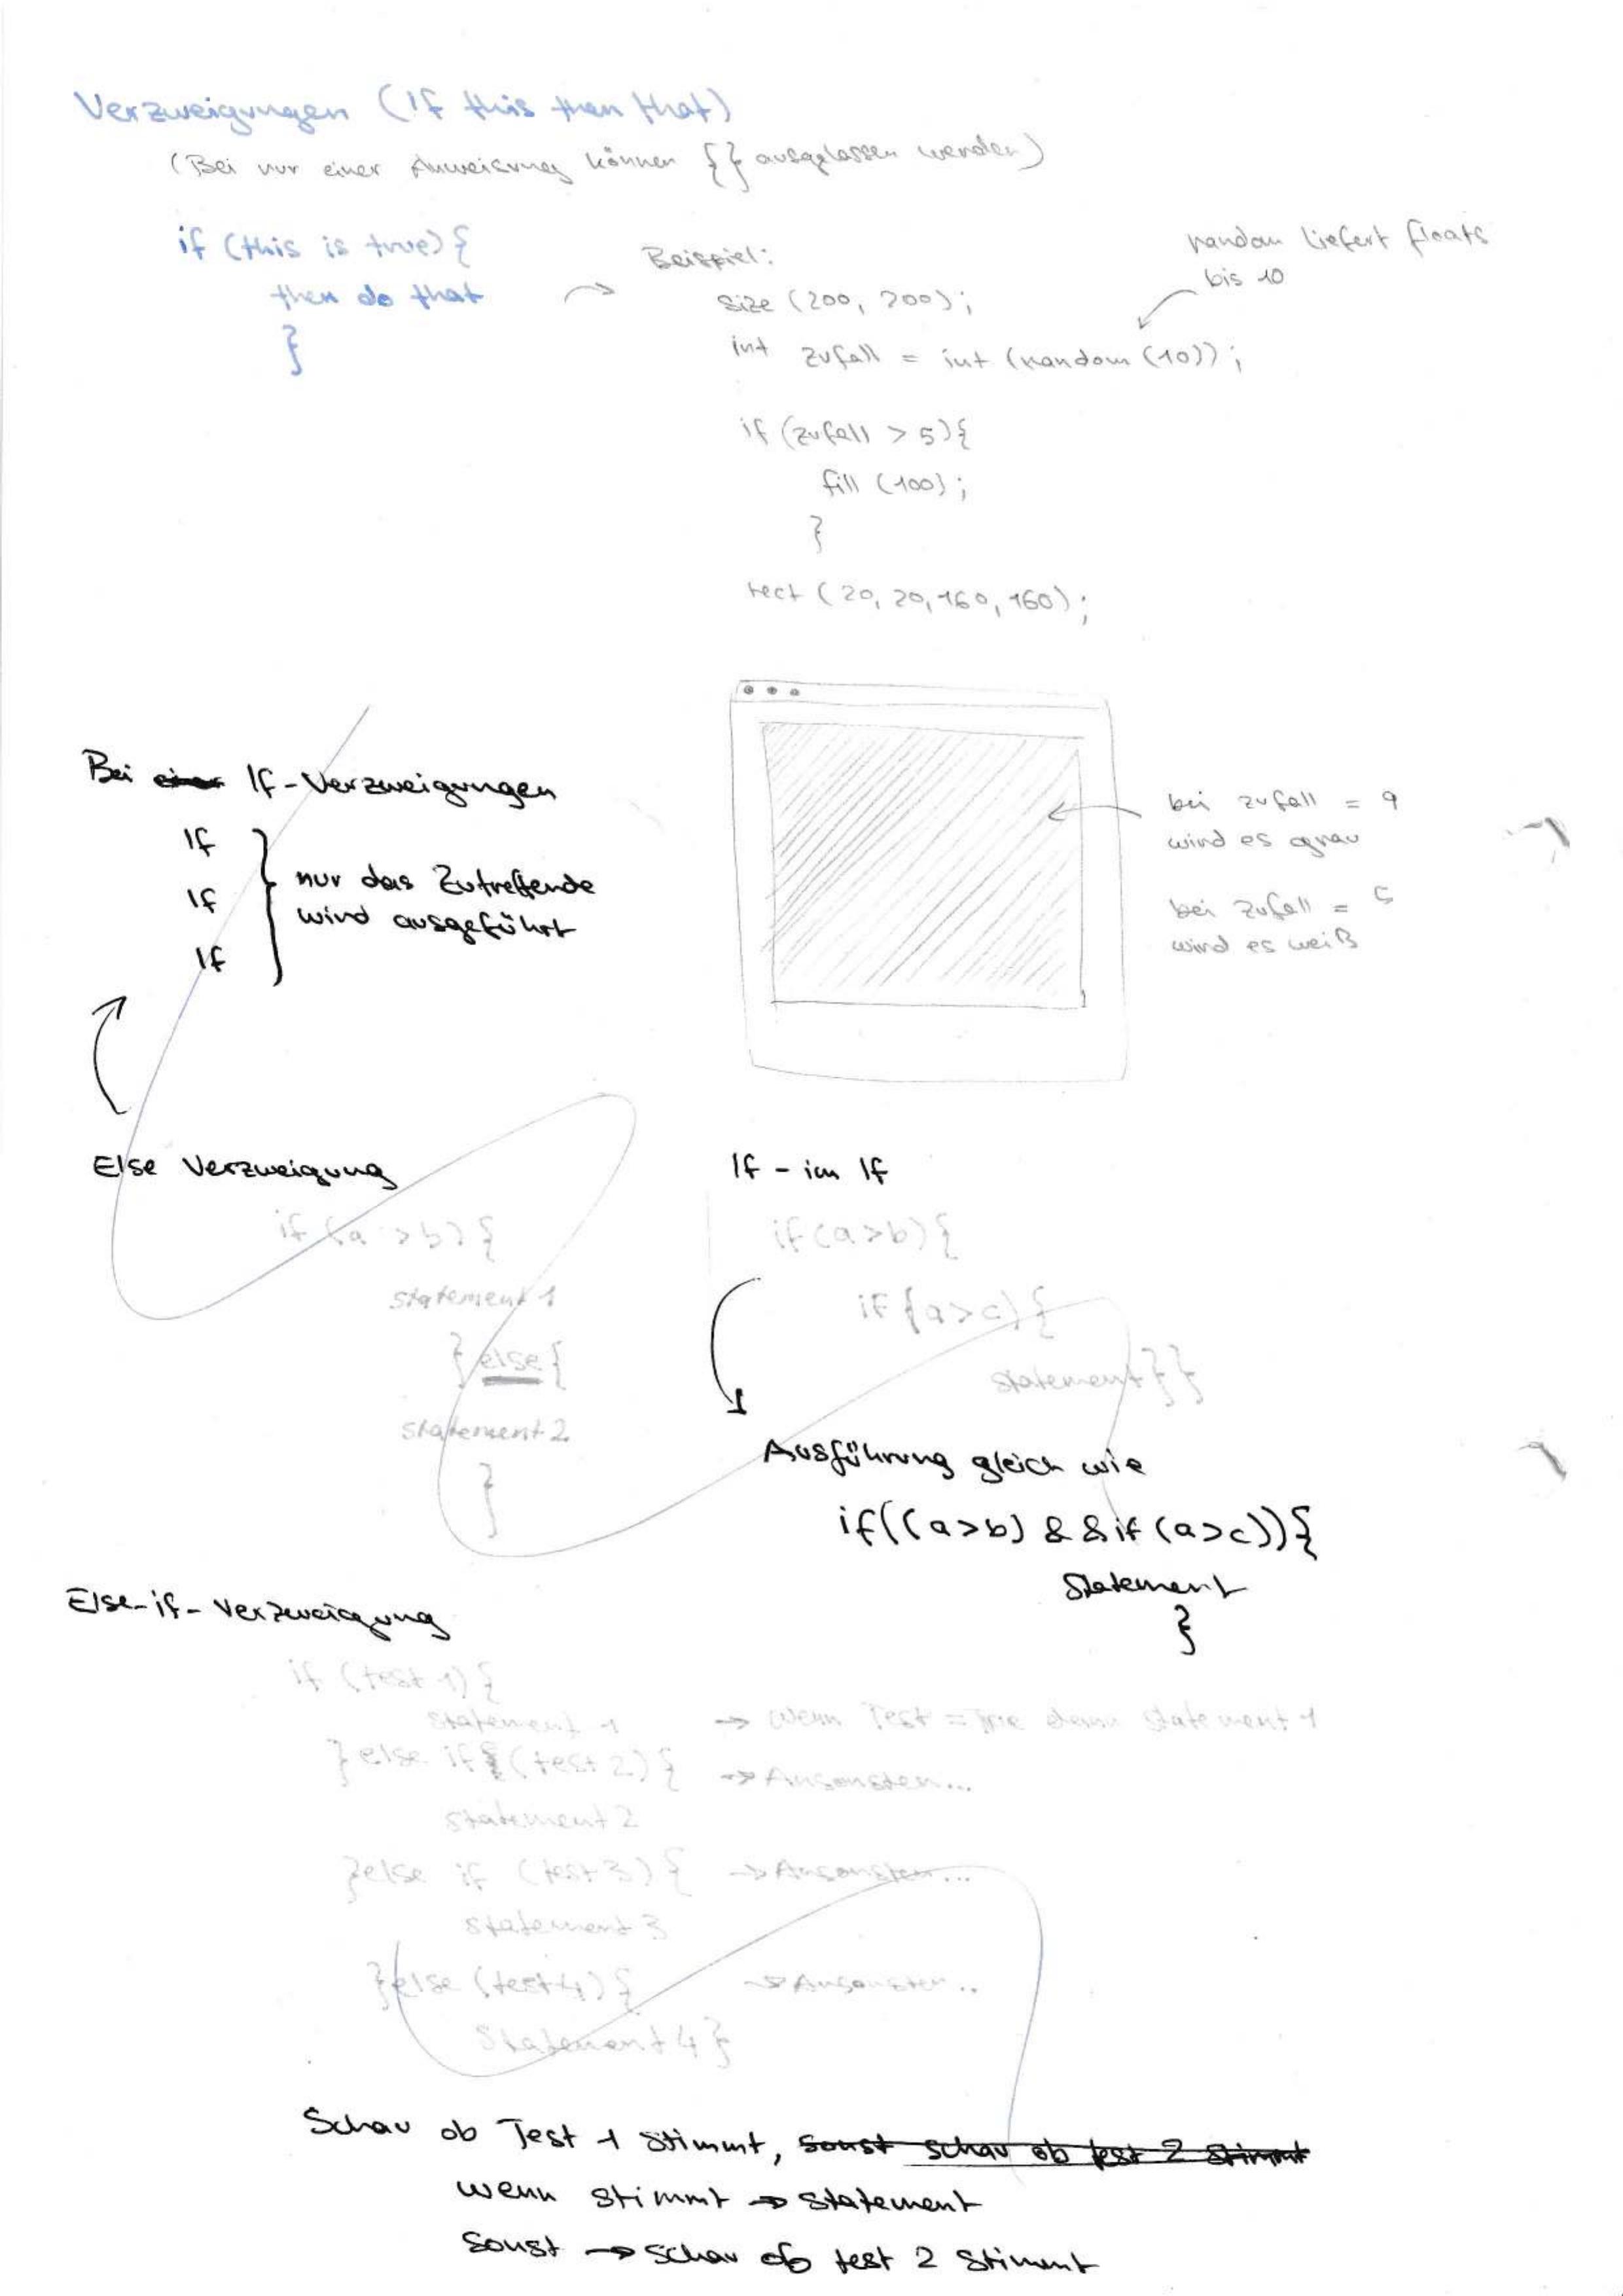 Verzweigungen (If this then that)
(Bei nur einer Anweisung können {} ausgelassen werden)
if (this is true) {
then do that
}
Beispiel:
size (200, 200);
int zufall = int (random (10));
random liefert floats
bis 10
if (zufall > 5) {
fill (100);
}
rect (20, 20, 160, 160);
bei zufall = 9
wird es grau
bei zufall = 5
wird es weiß
Bei einer If-Verzweigungen
If
If
If
nur das Zutreffende
wird ausgeführt
Else Verzweigung
if (a > b) {
statement 1
} else {
statement 2
}
If - im If
if (a > b) {
if (a > c) {
statement } }
Ausführung gleich wie
if ((a > b) && if (a > c)) {
Statement
}
Else-if-Verzweigung
if (test 1) {
statement 1 → Wenn Test = True dann statement 1
} else if (test 2) { → Ansonsten...
statement 2
} else if (test 3) { → Ansonsten...
statement 3
} else (test 4) { → Ansonsten..
Statement 4 }
Schau ob Test 1 stimmt, sonst schau ob test 2 stimmt
wenn stimmt → statement
Sonst → schau ob test 2 stimmt